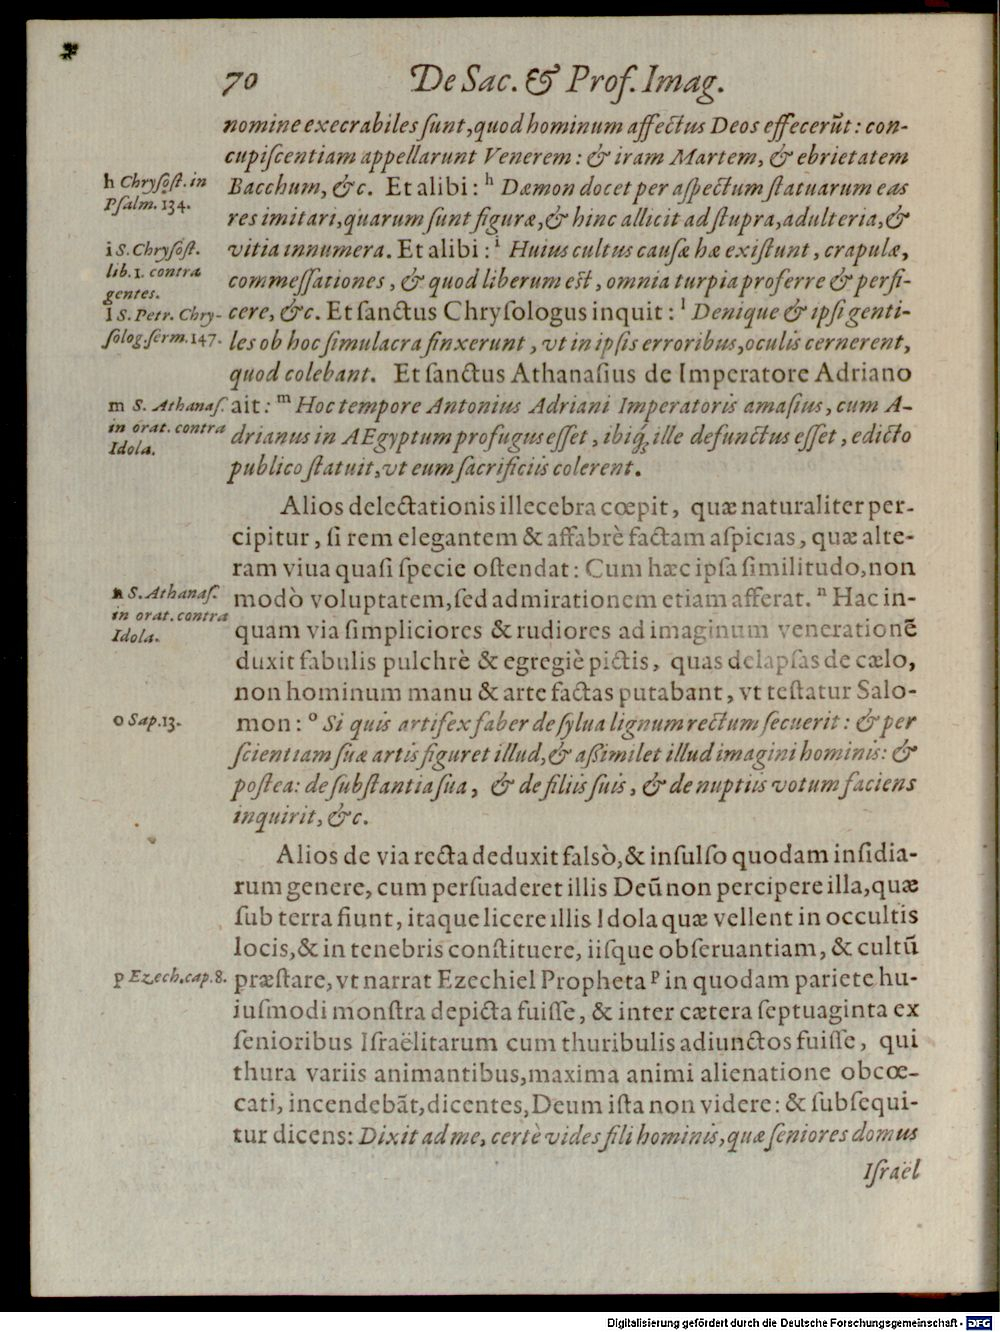 70 De Sac. & Prof. Imag.
nomine execrabiles ſunt, quod hominum affectus Deos effecerũt: con-
cupiſcentiam appellarunt Venerem: & iram Martem, & ebrietatem
h Chryſoſt. in
Pſalm. 134.
Bacchum, &c. Et alibi: h Dæmon docet per aſpectum ſtatuarum eas
res imitari, quarum ſunt figuræ, & hinc allicit ad ſtupra, adulteria, &
i S. Chryſoſt.
lib. 1. contra
gentes.
vitia innumera. Et alibi: i Huius cultus cauſæ hæ exiſtunt, crapulæ,
commeſſationes, & quod liberum eſt, omnia turpia proferre & perfi-
l S. Petr. Chry-
ſolog. ſerm. 147.
cere, &c. Et ſanctus Chryſologus inquit: l Denique & ipſi genti-
les ob hoc ſimulacra finxerunt, vt in ipſis erroribus, oculis cernerent,
quod colebant. Et ſanctus Athanaſius de Imperatore Adriano
m S. Athanaſ.
in orat. contra
Idola.
ait: m Hoc tempore Antonius Adriani Imperatoris amaſius, cum A-
drianus in AEgyptum profugus eſſet, ibiq́; ille defunctus eſſet, edicto
publico ſtatuit, vt eum ſacrificiis colerent.
Alios delectationis illecebra cœpit, quæ naturaliter per-
cipitur, ſi rem elegantem & affabrè factam aſpicias, quæ alte-
ram viua quaſi ſpecie oſtendat: Cum hæc ipſa ſimilitudo, non
n S. Athanaſ.
in orat. contra
Idola.
modò voluptatem, ſed admirationem etiam afferat. n Hac in-
quam via ſimpliciores & rudiores ad imaginum venerationẽ
duxit fabulis pulchrè & egregiè pictis, quas delapſas de cælo,
non hominum manu & arte factas putabant, vt teſtatur Salo-
o Sap. 13.
mon: o Si quis artifex faber de ſylua lignum rectum ſecuerit: & per
ſcientiam ſuæ artis figuret illud, & aßimilet illud imagini hominis: &
poſtea: de ſubſtantia ſua, & de filiis ſuis, & de nuptiis votum faciens
inquirit, &c.
Alios de via recta deduxit falsò, & inſulſo quodam inſidia-
rum genere, cum perſuaderet illis Deũ non percipere illa, quæ
ſub terra fiunt, itaque licere illis Idola quæ vellent in occultis
locis, & in tenebris conſtituere, iiſque obſeruantiam, & cultũ
p Ezech. cap. 8.
præſtare, vt narrat Ezechiel Propheta p in quodam pariete hu-
iuſmodi monſtra depicta fuiſſe, & inter cætera ſeptuaginta ex
ſenioribus Iſraëlitarum cum thuribulis adiunctos fuiſſe, qui
thura variis animantibus, maxima animi alienatione obcœ-
cati, incendebãt, dicentes, Deum iſta non videre: & ſubſequi-
tur dicens: Dixit ad me, certè vides fili hominis, quæ ſeniores domus
Iſraël
Digitalisierung gefördert durch die Deutsche Forschungsgemeinschaft - DFG